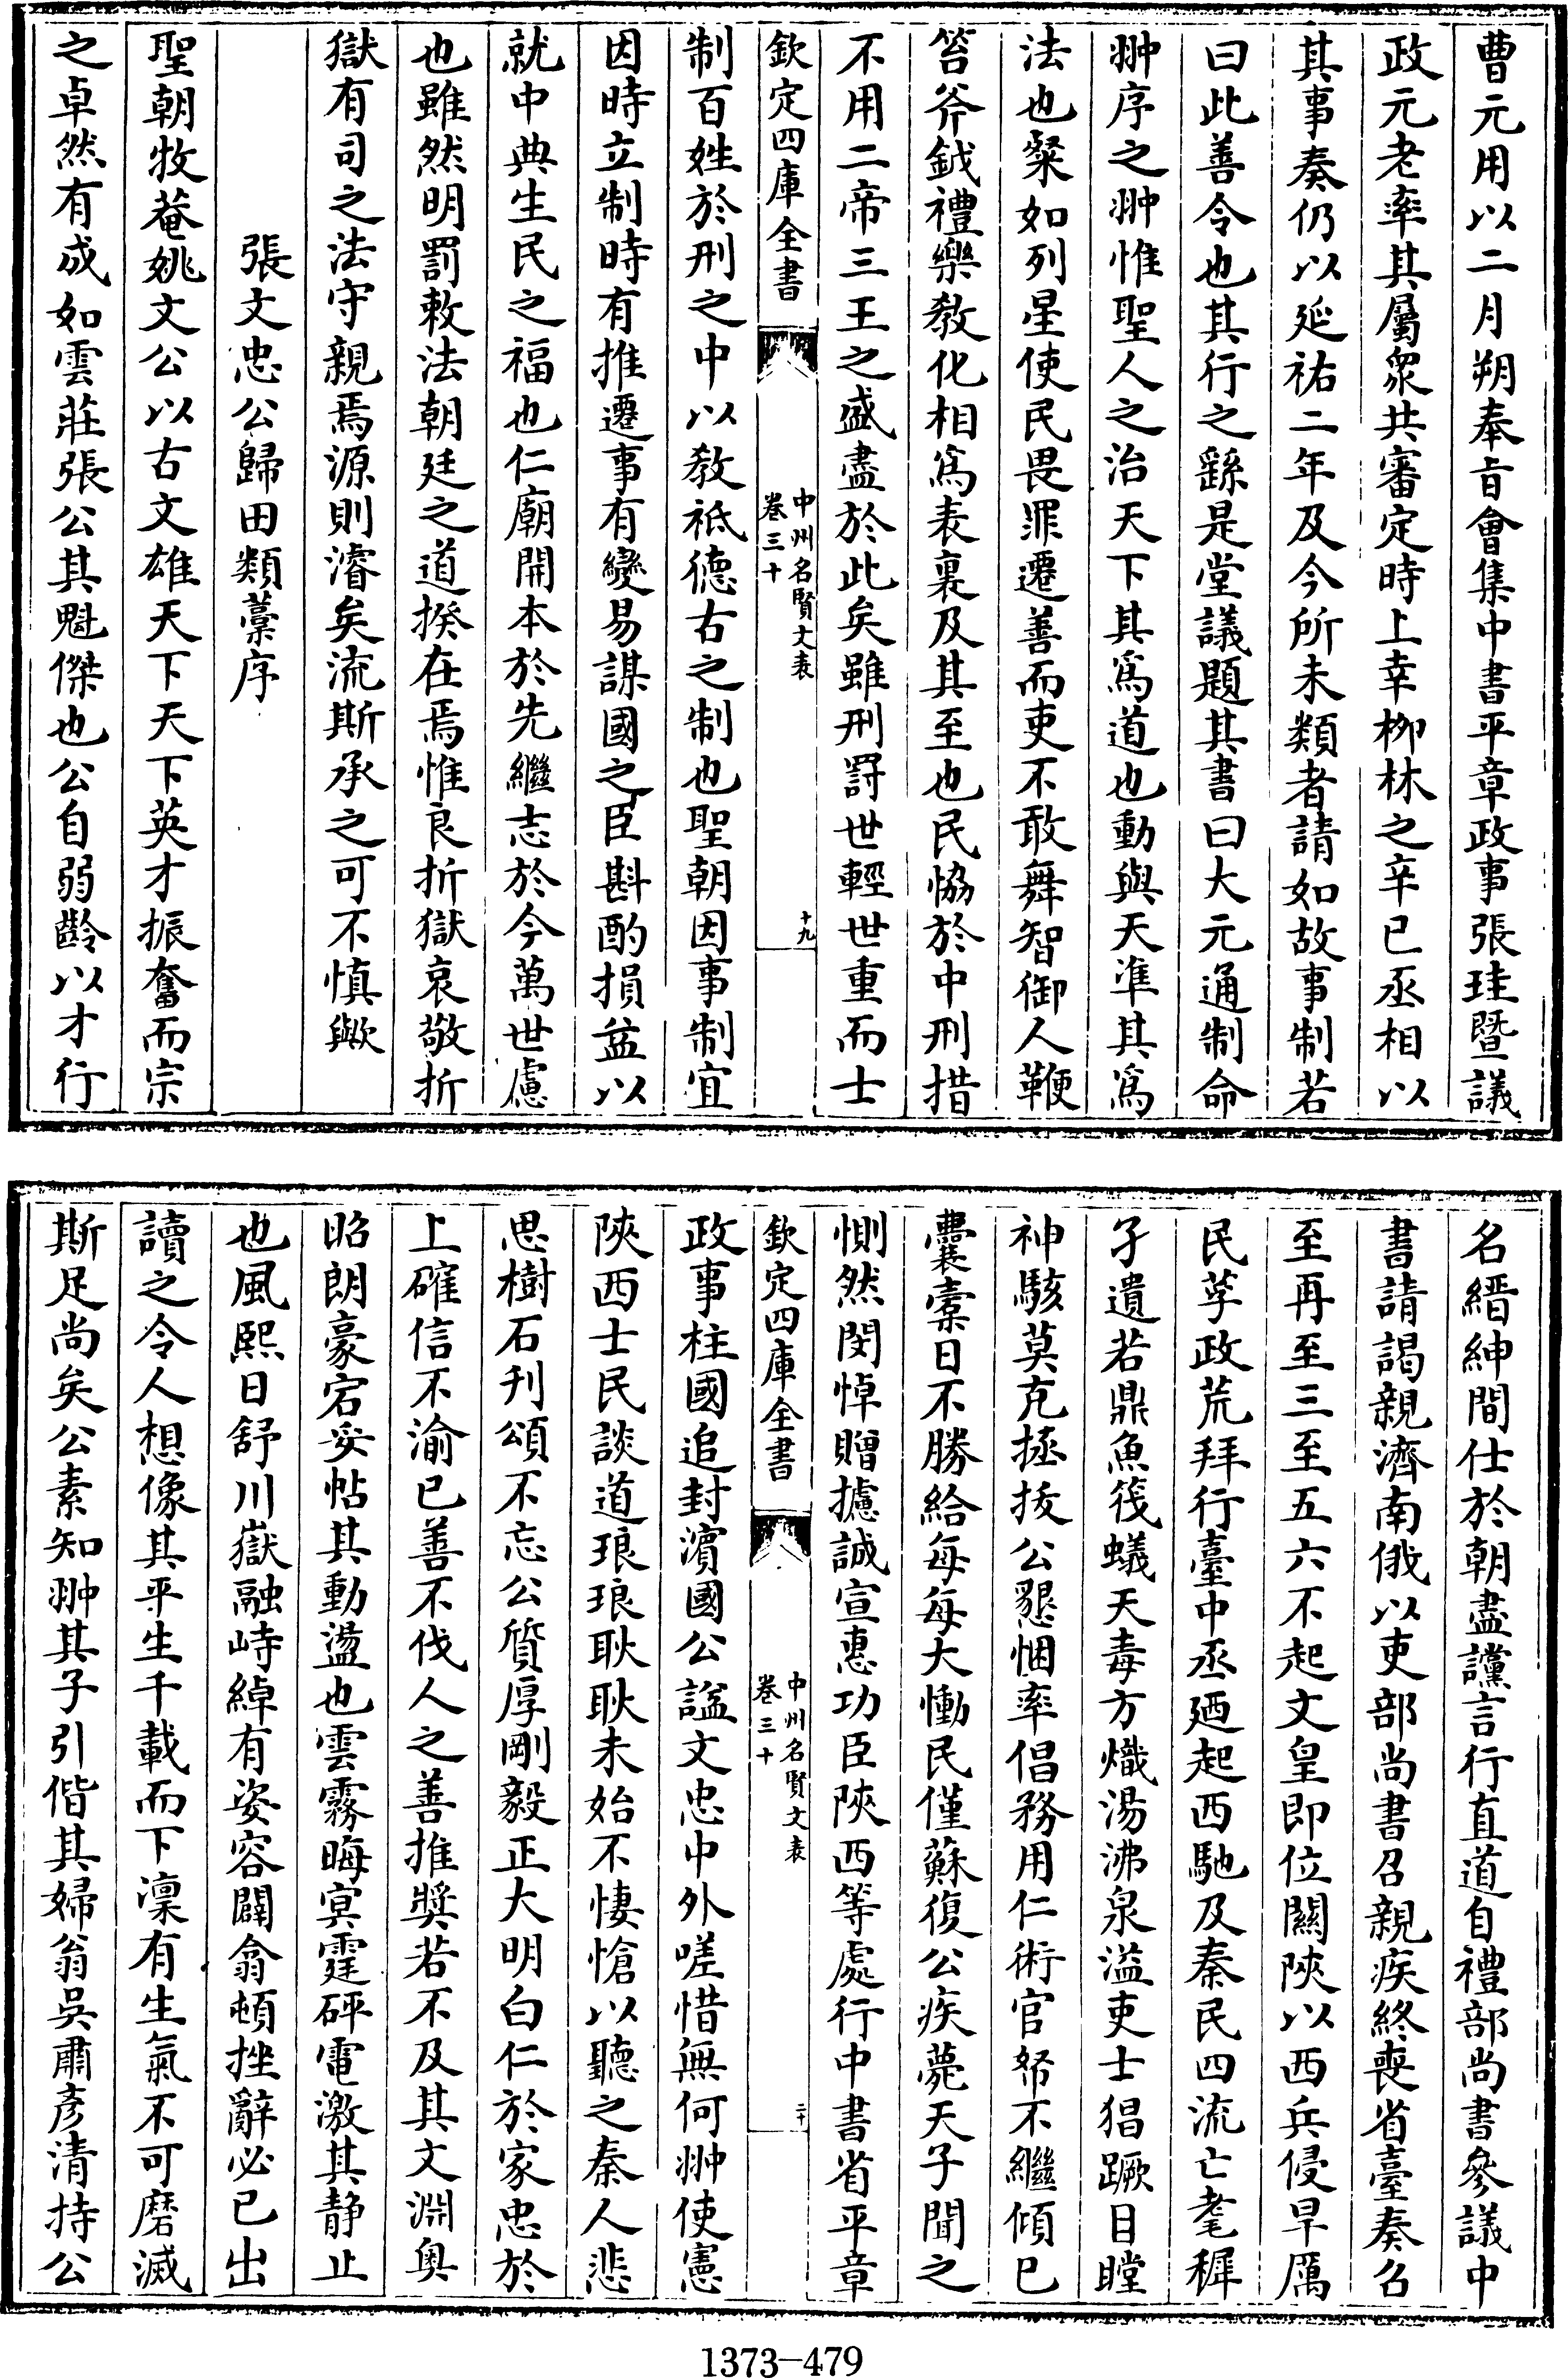 曹元用以二月朔奉旨會集中書平章政事張珪暨議
政元老率其屬衆共審定時上幸栁林之辛巳丞相以
其事奏仍以延祐二年及今所未類者請如故事制若
曰此善令也其行之繇是堂議題其書曰大元通制命
翀序之翀惟聖人之治天下其爲道也動與天準其爲
法也粲如列星使民畏罪遷善而吏不敢舞智御人鞭
笞斧鉞禮樂敎化相爲表裏及其至也民恊於中刑措
不用二帝三王之盛盡於此矣雖刑罸世輕世重而士
欽定四庫全書
中州名賢文表
卷三十
十九
制百姓於刑之中以敎祗德古之制也聖朝因事制宜
因時立制時有推遷事有變易謀國之臣斟酌損益以
就中典生民之福也仁廟開本於先繼志於今萬世慮
也雖然明罰敕法朝廷之道揆在焉惟良折獄哀敬折
獄有司之法守親焉源則濬矣流斯承之可不慎歟
張文忠公歸田類藁序
聖朝牧菴姚文公以古文雄天下天下英才振奮而宗
之卓然有成如雲莊張公其魁傑也公自弱齡以才行
名縉紳間仕於朝盡讜言行直道自禮部尚書參議中
書請謁親濟南俄以吏部尚書召親疾終喪省臺奏召
至再至三至五六不起文皇即位關陝以西兵侵旱厲
民莩政荒拜行臺中丞廼起西馳及秦民四流亡耄穉
孑遺若鼎魚筏蟻天毒方熾湯沸泉溢吏士猖蹶目瞠
神駭莫克拯拔公懇悃率倡務用仁術官帑不繼傾已
囊槖日不勝給每每大慟民僅蘇復公疾薨天子聞之
惻然閔悼贈攄誠宣惠功臣陝西等處行中書省平章
欽定四庫全書
中州名賢文表
卷三十
二十
政事柱國追封濵國公諡文忠中外嗟惜無何翀使憲
陝西士民談道琅琅耿耿未始不悽愴以聽之秦人悲
思樹石刋頌不忘公質厚剛毅正大明白仁於家忠於
上確信不渝已善不伐人之善推奬若不及其文淵奥
昭朗豪宕妥帖其動盪也雲霧晦㝠霆砰電激其静止
也風熙日舒川嶽融峙綽有姿容闢翕頓挫辭必已出
讀之令人想像其平生千載而下凛有生氣不可磨滅
斯足尚矣公素知翀其子引偕其婦翁吳肅彥清持公
1373-479